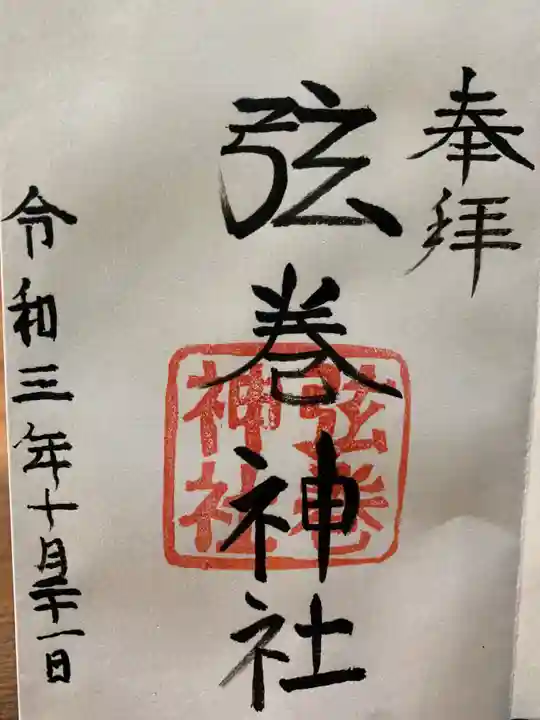 奉拝
弦巻神社
弦巻
神社
令和三年十月二十一日